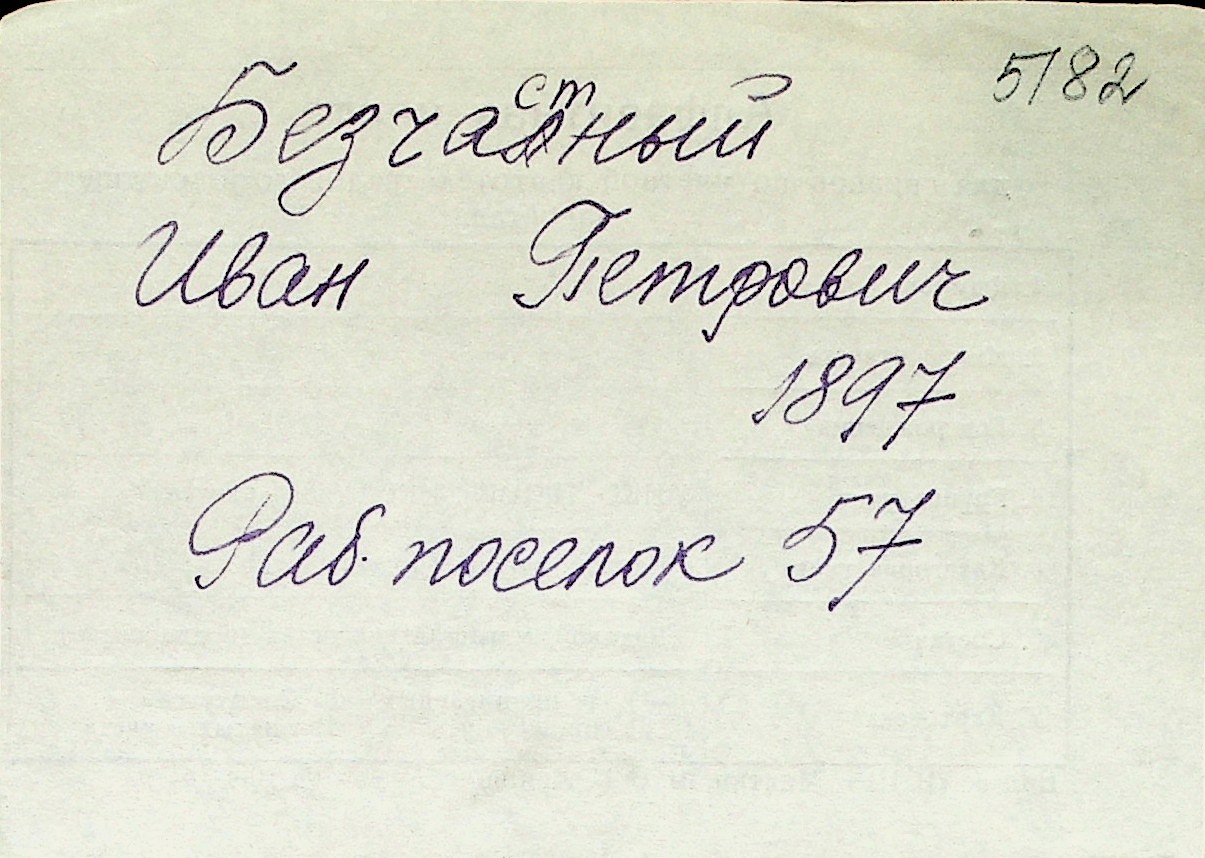 5182
Безчастный
Иван Петрович
1897
Раб. поселок 57